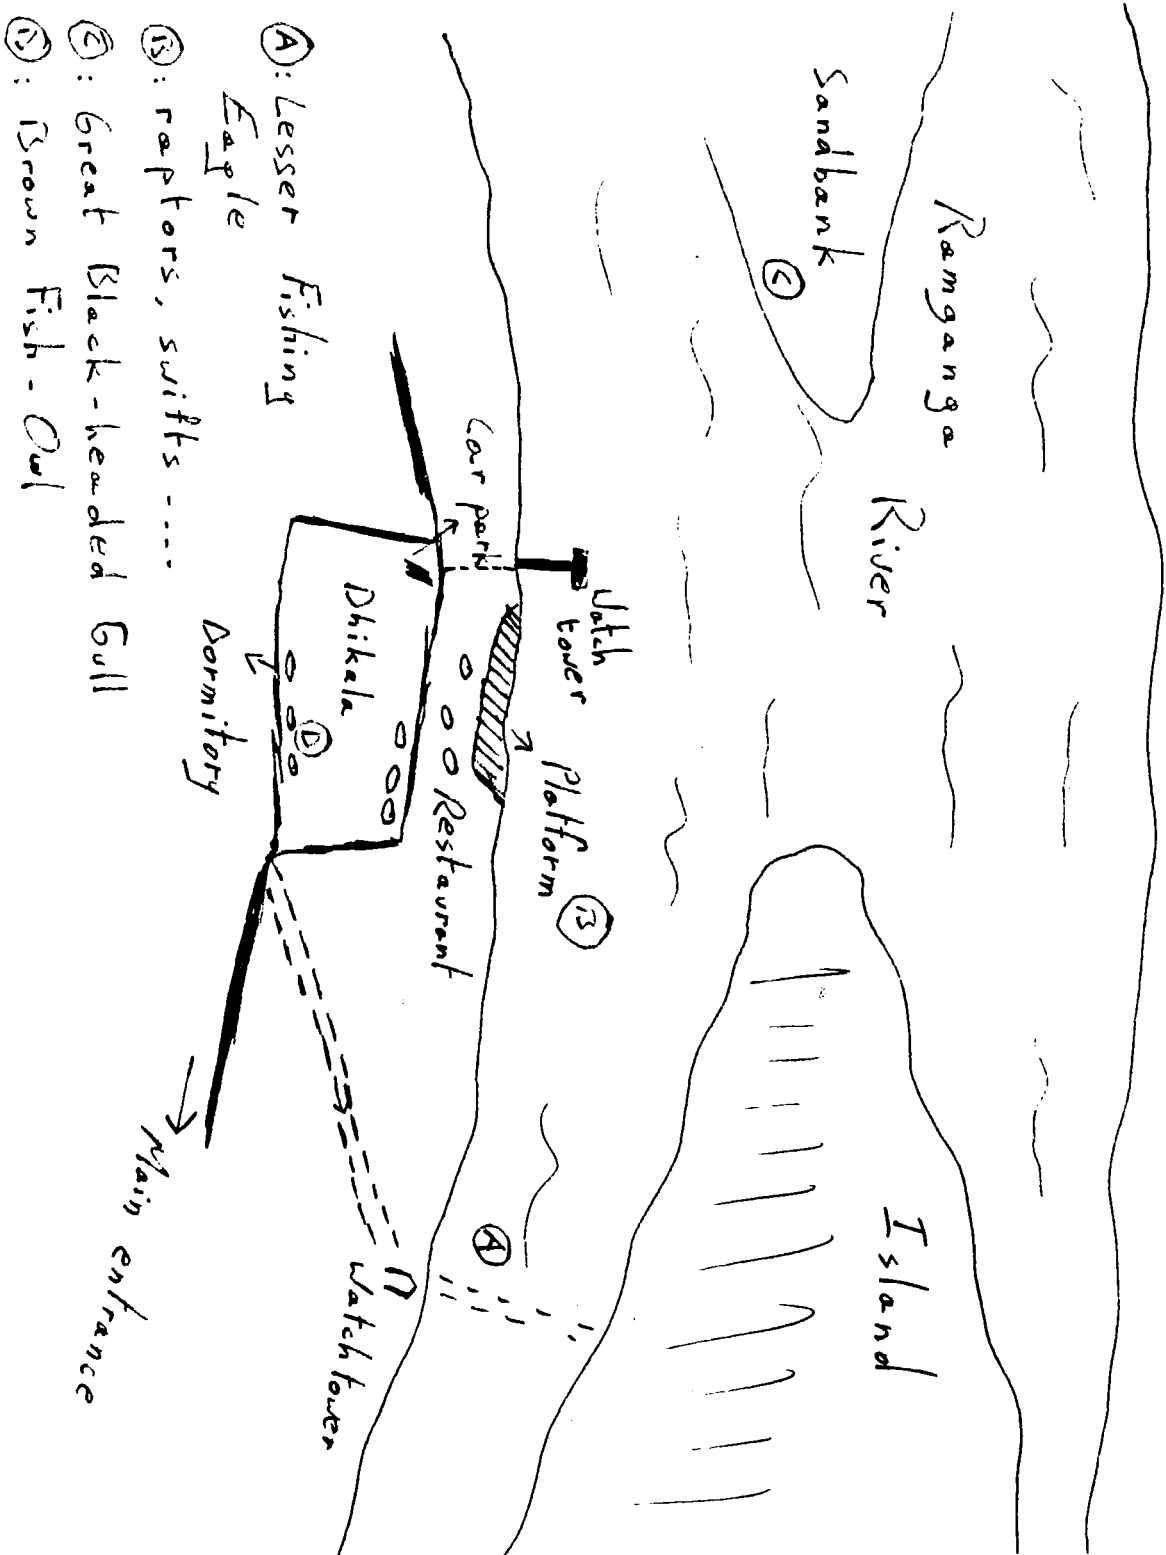 Ramganga
River
Sandbank
C
Island
Watch
tower
Platform
B
Car park
Restaurant
A
Dhikala
D
Dormitory
Watchtower
Main entrance
A: Lesser Fishing
Eagle
B: raptors, swifts ----
C: Great Black-headed Gull
D: Brown Fish-Owl